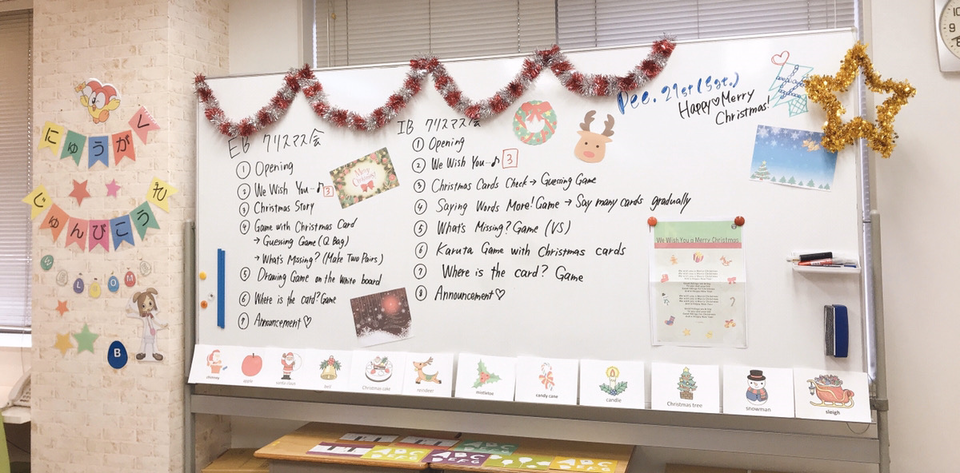 にゅうがく
じゅんびこうえん
B
EB クリスマス会
① Opening
② We Wish You…♪ 3
③ Christmas Story
④ Game with Christmas Card
→ Guessing Game (Q Bag)
→ What's Missing? (Make Two Pairs)
⑤ Drawing Game on the White board
⑥ Where is the card? Game
⑦ Announcement♡
IB クリスマス会
① Opening
② We Wish You…♪ 3
③ Christmas Cards Check → Guessing Game
④ Saying Words More! Game → Say many cards gradually
⑤ What's Missing? Game (VS)
⑥ Karuta Game with Christmas cards
⑦ Where is the card? Game
⑧ Announcement♡
Dec. 21st (Sat.)
Happy♡Merry
Christmas!
Merry
Christmas
We Wish You a Merry Christmas
chimney
apple
Santa Claus
bell
Christmas cake
reindeer
mistletoe
candy cane
candle
Christmas tree
snowman
sleigh
ABC
DEFG
ABC
DEFG
10
9
8